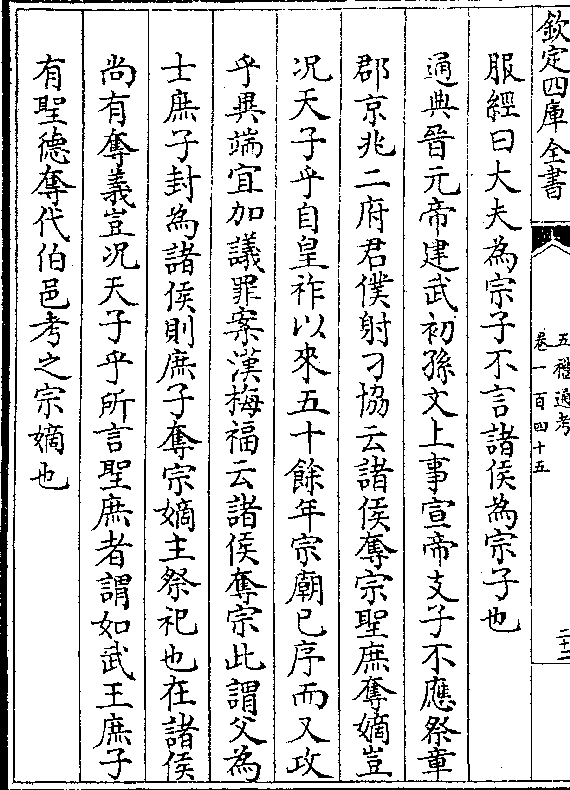 欽定四庫全書
五禮通考
卷一百四十五
二十二
服經曰大夫為宗子不言諸侯為宗子也
通典晉元帝建武初孫文上事宣帝支子不應祭章
郡京兆二府君僕射刁協云諸侯奪宗聖庶奪嫡豈
况天子乎自皇祚以來五十餘年宗廟已序而又攻
乎異端宜加議罪案漢梅福云諸侯奪宗此謂父為
士庶子封為諸侯則庶子奪宗嫡主祭祀也在諸侯
尚有奪義豈况天子乎所言聖庶者謂如武王庶子
有聖德奪代伯邑考之宗嫡也